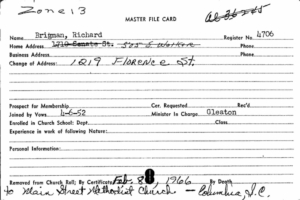 Zone 13
MASTER FILE CARD
Name Brigman, Richard Register No. 4706
Home Address 1719 Senate St. Phone
Business Address Phone
Change of Address: 1219 Florence St.
Prospect for Membership Cor. Requested Rec'd
Joined by Vows 4-6-52 Minister in Charge Gleaton
Enrolled in Church School: Dept. Class
Experience in work of following Nature:
Personal Information:
Removed from Church Roll: By Certificate Feb. 8, 1966 By Death
to Main Street Methodist Church - Columbia, S.C.